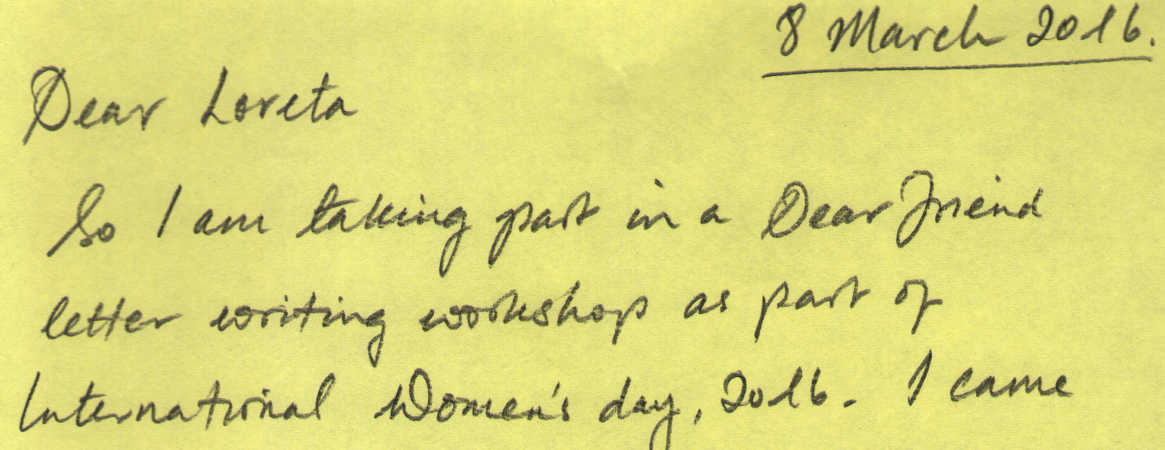 8 March 2016.
Dear Loreta
So I am taking part in a Dear Friend
letter writing workshop as part of
International Women's day, 2016. I came